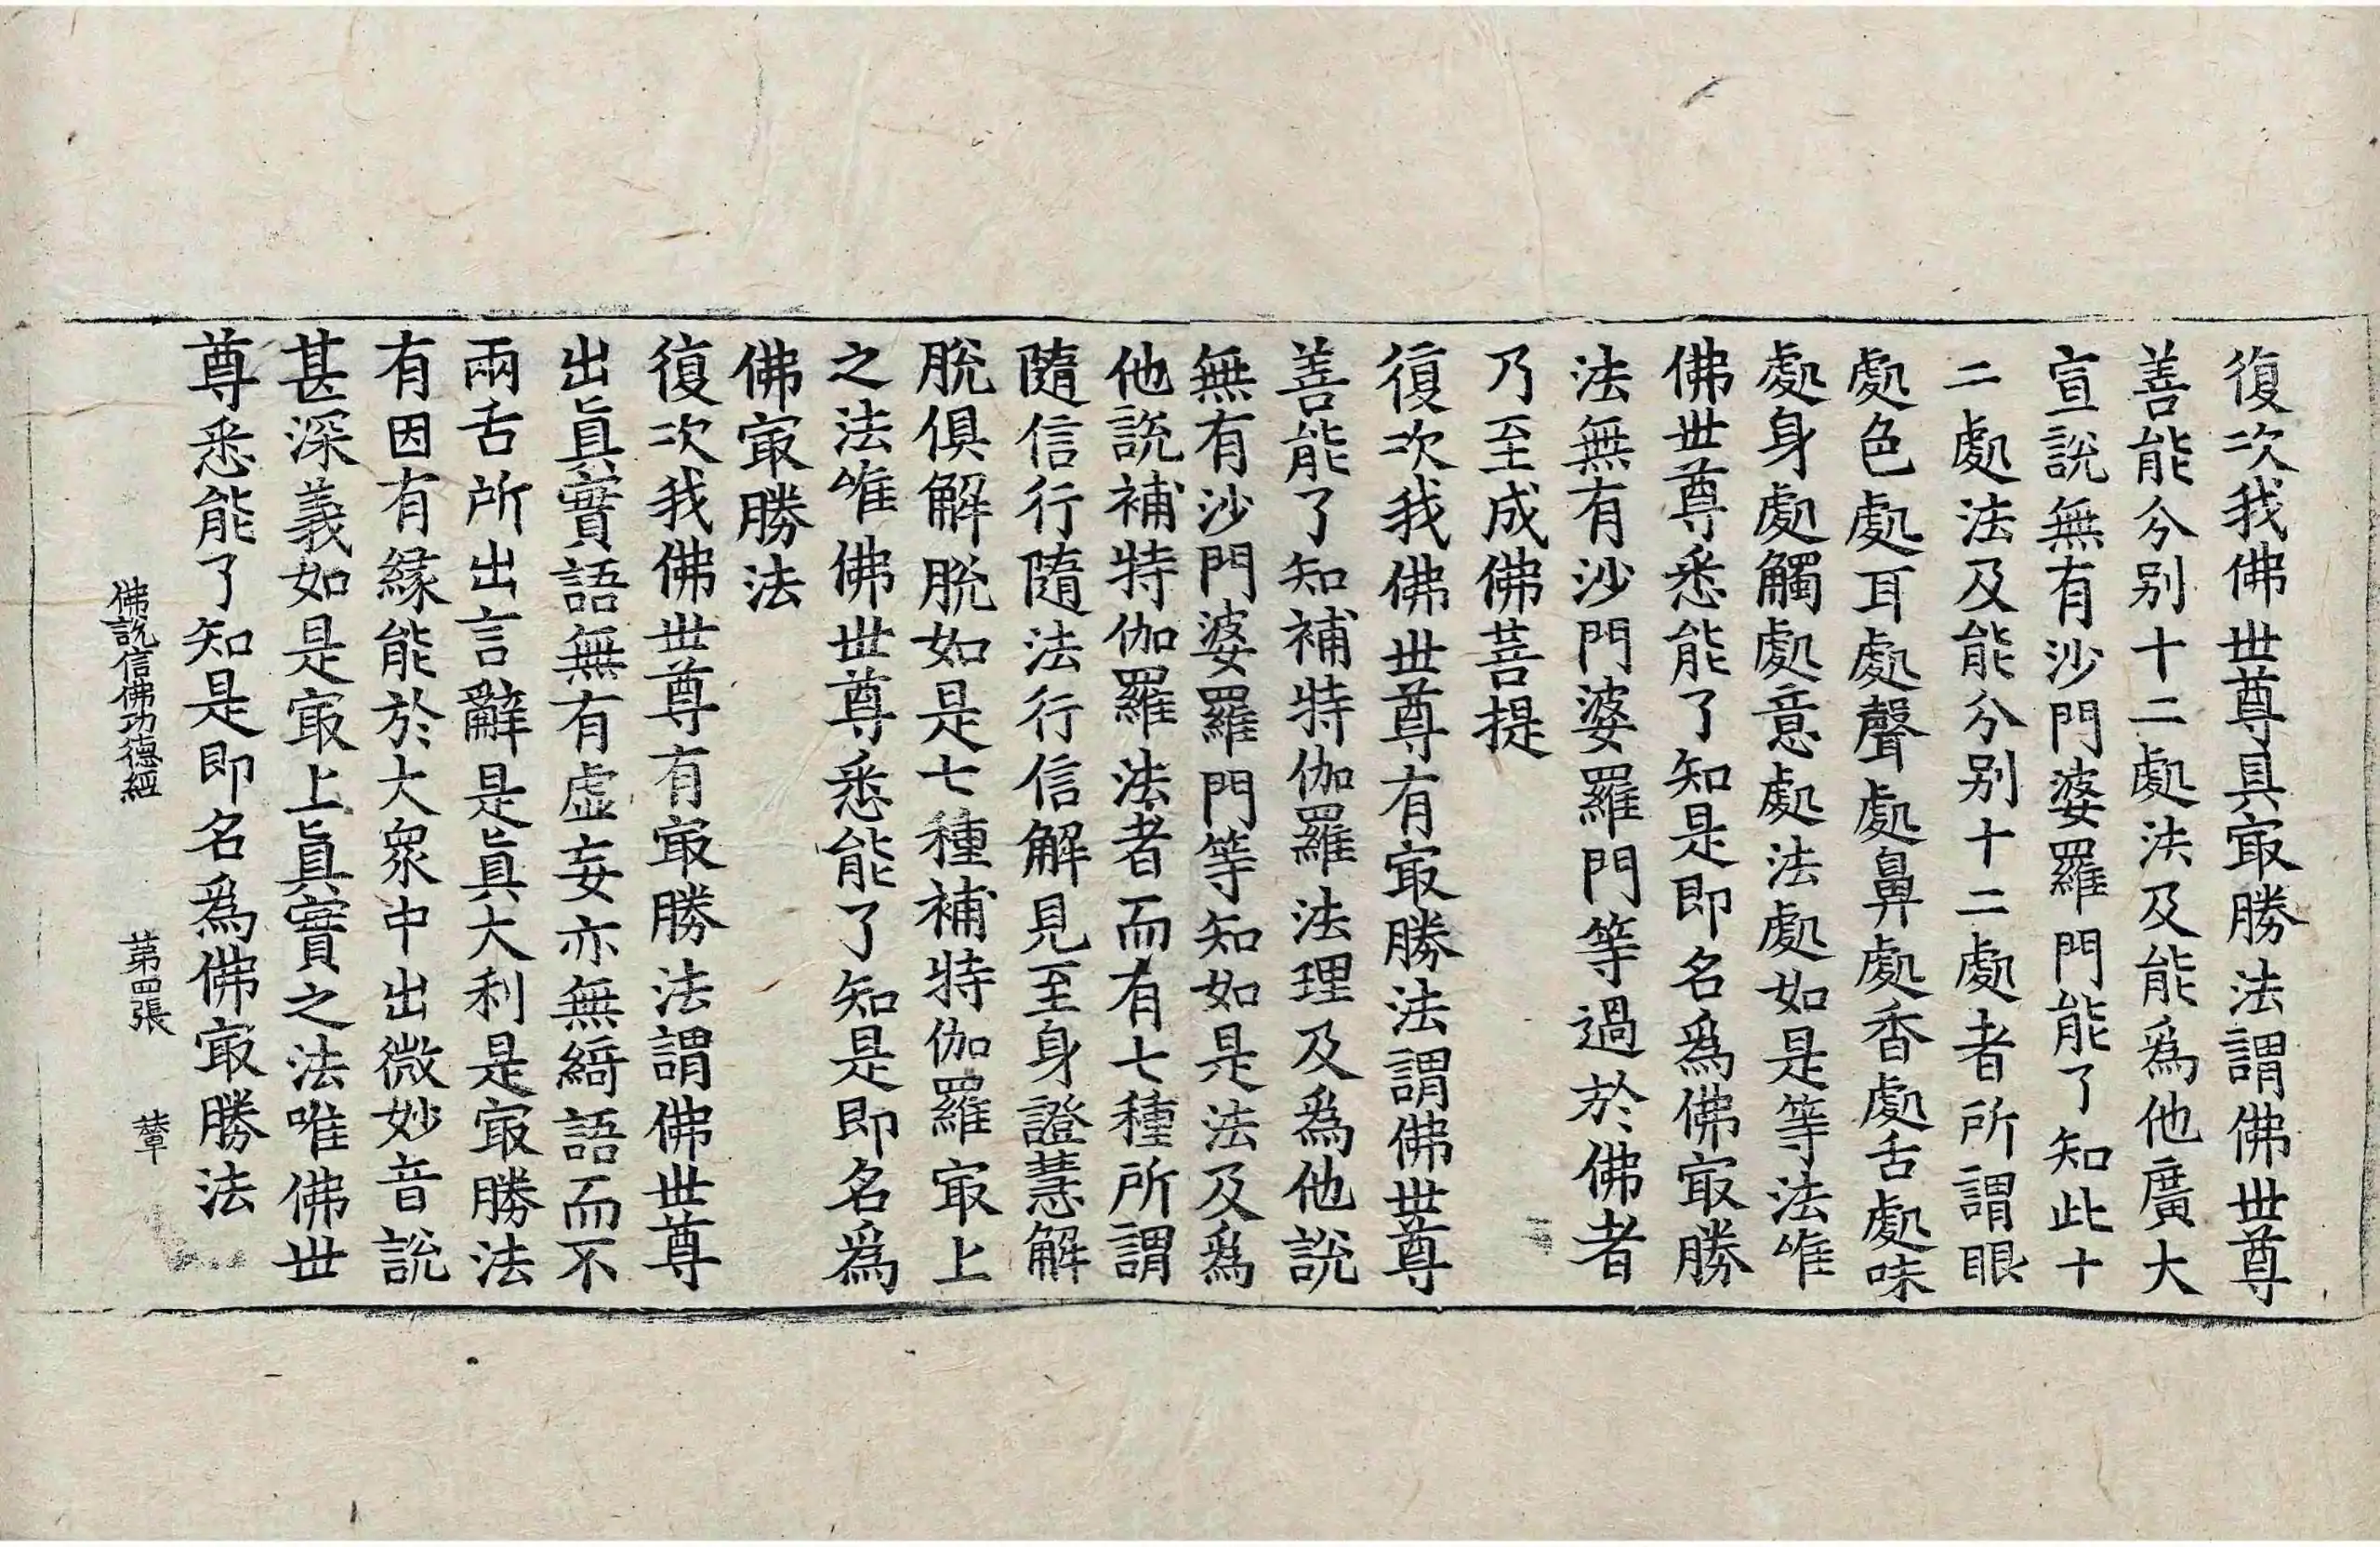 復次我佛世尊具㝡勝法謂佛世尊
善能分別十二處法及能爲他廣大
宣說無有沙門婆羅門能了知此十
二處法及能分別十二處者所謂眼
處色處耳處聲處鼻處香處舌處味
處身處觸處意處法處如是等法唯
佛世尊悉能了知是即名爲佛㝡勝
法無有沙門婆羅門等過於佛者
乃至成佛菩提
復次我佛世尊有㝡勝法謂佛世尊
善能了知補特伽羅法理及爲他說
無有沙門婆羅門等知如是法及爲
他說補特伽羅法者而有七種所謂
隨信行隨法行信解見至身證慧解
脫俱解脫如是七種補特伽羅㝡上
之法唯佛世尊悉能了知是即名爲
佛㝡勝法
復次我佛世尊有㝡勝法謂佛世尊
出眞實語無有虛妄亦無綺語而不
兩舌所出言辭是眞大利是㝡勝法
有因有緣能於大衆中出微妙音說
甚深義如是㝡上眞實之法唯佛世
尊悉能了知是即名爲佛㝡勝法
佛說信佛功德經 第四張 輦